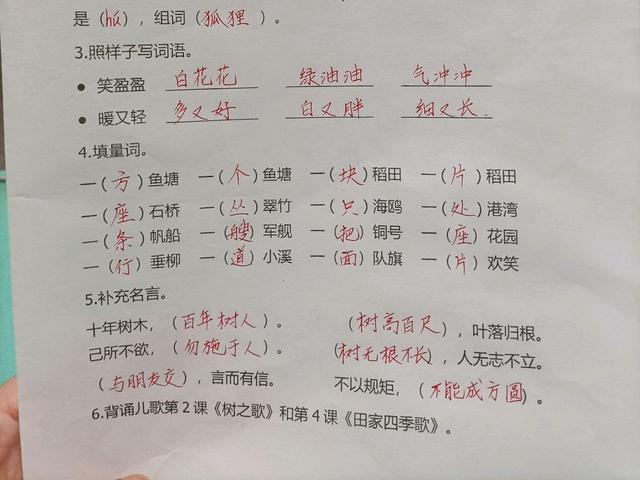 是（hú），组词（狐狸）。
3.照样子写词语。
● 笑盈盈 白花花 绿油油 气冲冲
● 暖又轻 多又好 白又胖 细又长.
4.填量词。
一（方）鱼塘 一（个）鱼塘 一（块）稻田 一（片）稻田
一（座）石桥 一（丛）翠竹 一（只）海鸥 一（处）港湾
一（条）帆船 一（艘）军舰 一（把）铜号 一（座）花园
一（行）垂柳 一（道）小溪 一（面）队旗 一（片）欢笑
5.补充名言。
十年树木，（百年树人）。 （树高百尺），叶落归根。
己所不欲，（勿施于人）。 （树无根不长），人无志不立。
（与朋友交），言而有信。 不以规矩，（不能成方圆）。
6.背诵儿歌第2课《树之歌》和第4课《田家四季歌》。